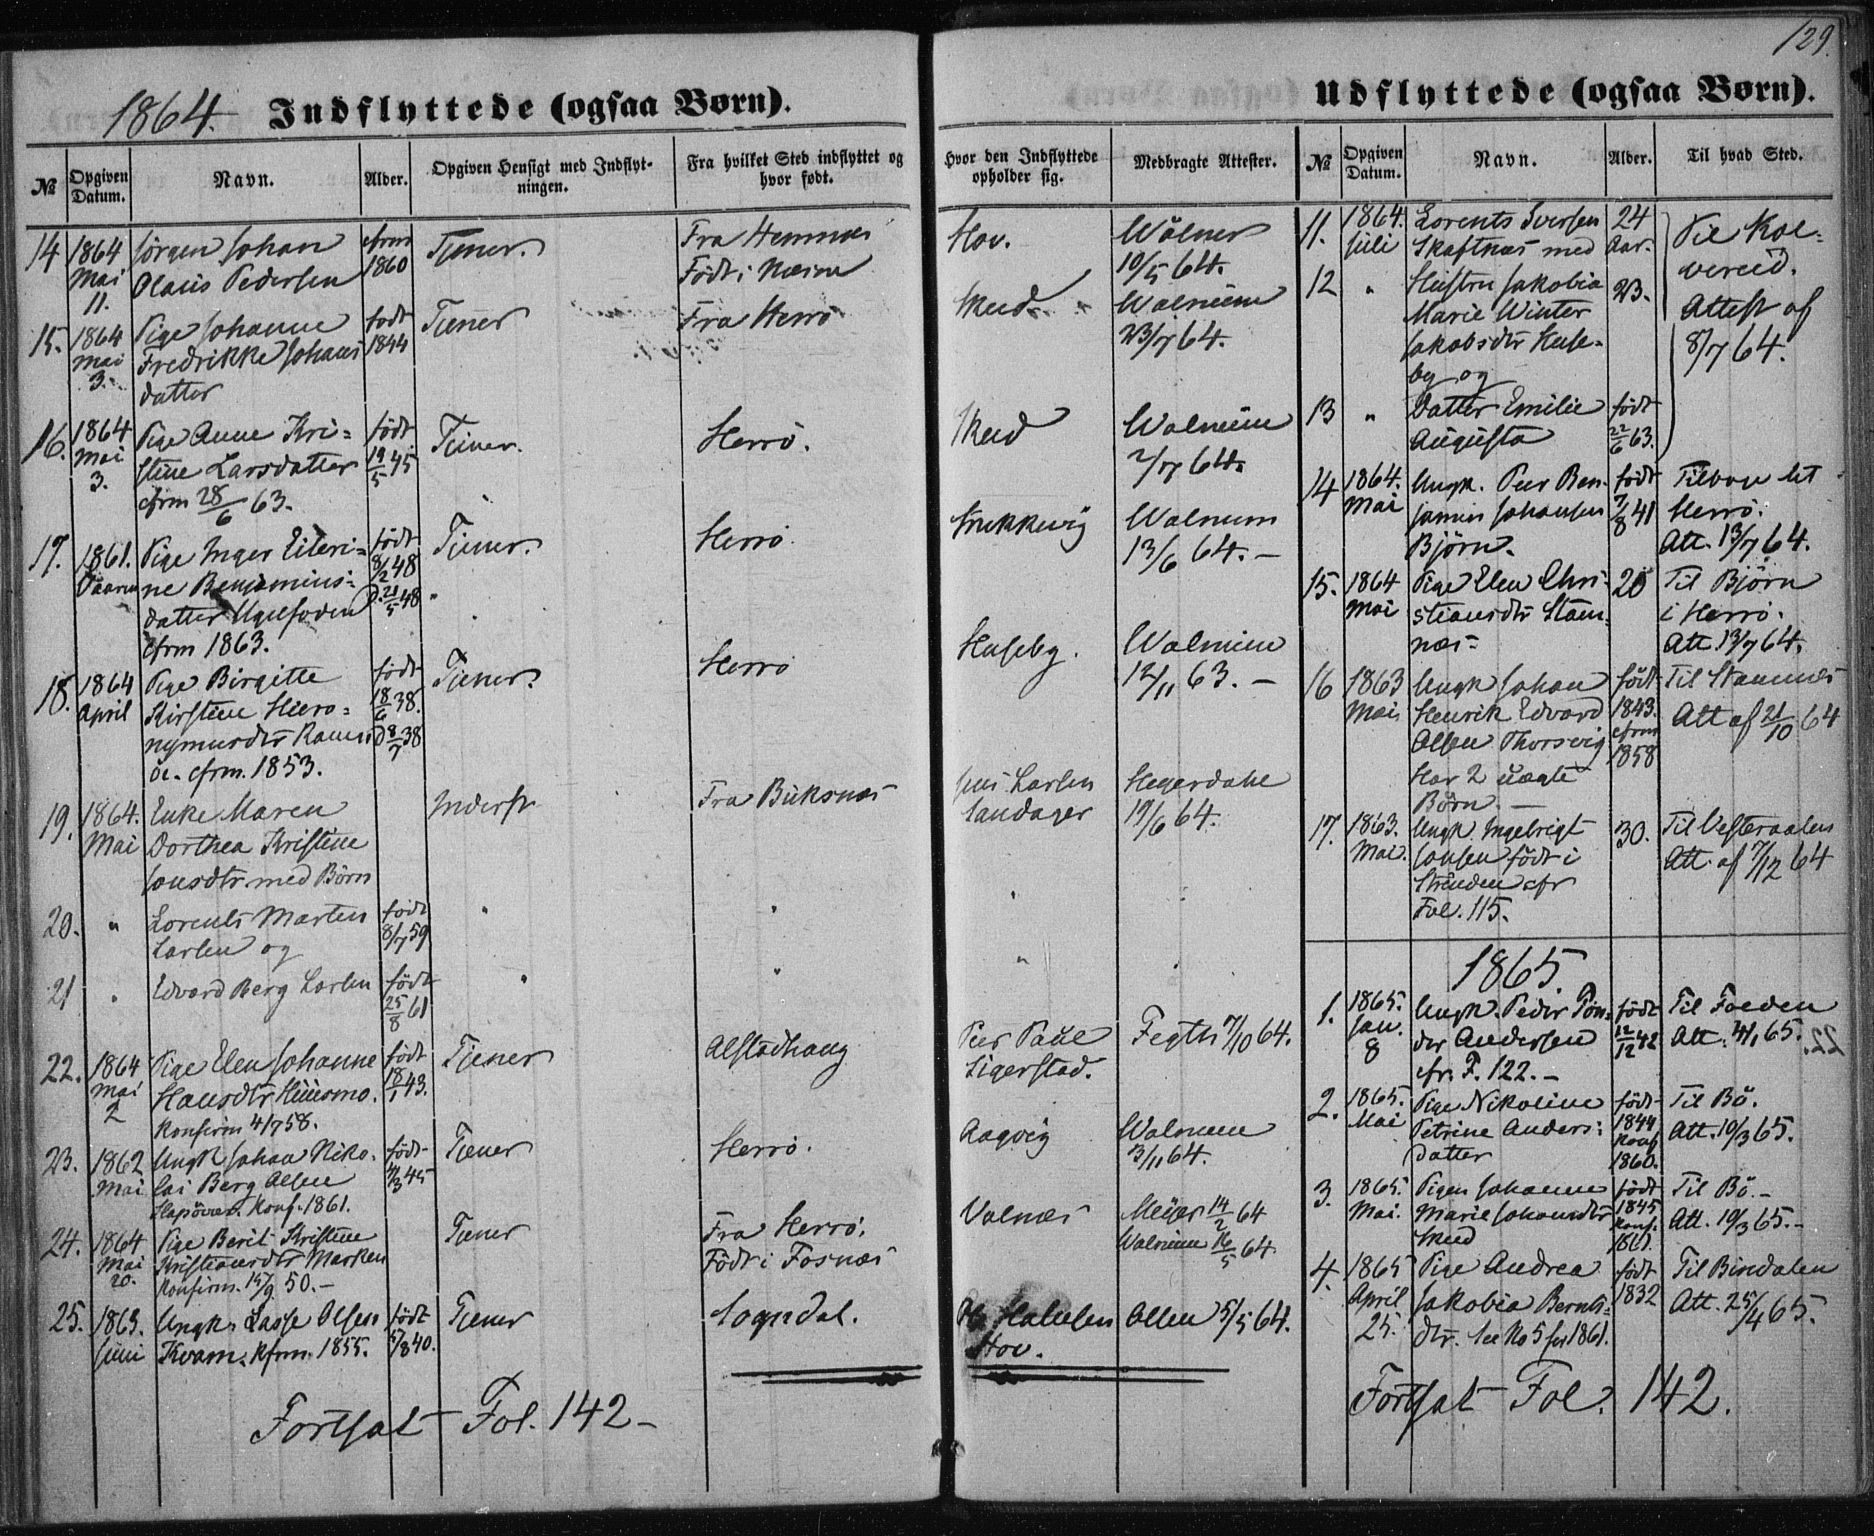 129.
1864. Indflyttede (ogsaa Børn).
№ Opgiven Datum. Navn. Alder. Opgiven Hensigt med Indflytningen. Fra hvilket Sted indflyttet og hvor født. Hvor den Indflyttede opholder sig. Medbragte Attester.
14 1864 Mai 11. Jørgen Johan Olaus Pedersen cfrm 1860 Tjener. Fra Hemnæs Født i Næsne Hov. Wolner 10/5 64.
15. 1864 Mai 3. Pige Johanne Fredrikke Johans datter født 1844 Tjener Fra Herrö Skeid Walnum 23/7 64.
16. 1864 Mai 3. Pige Anne Kri= stine Larsdatter cfrm 28/6 63. født 19/5 45 Tjener. Herrö. Skeid Walnum 2/7 64.
17. 1861. Vaaren Pige Inger Eileri= ne Benjamins= datter cfrm 1863. født 8/2 48 D. 21/5 48 Tjener. Herrö Walnum 13/6 64. –
18. 1864 April Pige Birgitte Kirstine Hiero= nymusdtr cfrm. 1853. født 18/6 38. D 8/7 38 Tjener. Herrö Huseby. Walnum 12/11 63. –
19. 1864. Mai Enke Maren Dorthea Kristine Jonsdtr med Børn Inderst Fra Buksnæs Jens Larsen Sandager Hegerdahl 19/6 64.
20. " Lorents Marten Larsen og født 8/7 59 " " " "
21 " Edvard Berg Larsen født 25/8 61 " " " "
22. 1864 Mai 2 Pige Elen Johanne Hansdtr Huusmo. Konfirm 4/7 58. født 18/1 43. Tjener Alstadhaug Peer Paul Sigerstad. Fegth 7/10 64.
23. 1862 Mai Ungk Johan Niko= lai Berg Olsen Konf. 1861. født 11/3 45 Tjener Herrö. Aagvig Walnum 3/11 64.
24. 1864 Mai 20. Pige Berit Kristine Kristiansdtr Marken Konfirm. 15/9 50. – Tjener Fra Herrö. Født i Fosnæs Valnæs Meijer 14/2 64 Walnum 16/5 64
25. 1863. Juni Ungk. Lasse Olsen Kvam. Kfrm. 1855. født 5/8 40. Tjener Sogndal. Hov. Olsen 5/5 64.
Fortsat Fol. 142 –
Udflyttede (ogsaa Børn).
№ Opgiven Datum. Navn. Alder. Til hvad Sted.
11. 1864. Juli Lorents Iversen Skaftnæs med 24 Aar. Til Kol= vereid. Attest af 8/7 64.
12 " Hustru Jakobia Marie Winter Jakobsdtr Huse= by og 23.
13 " Datter Emilie Augusta født 22/6 63.
14 1864. Mai Ungk. Peer Ben= jamin Johansen Bjørn. født 7/8 41 Tilbage til Herrö. Att. 13/7 64.
15. 1864 Mai Pige Elen Chri= stiansdtr Stam= næs. 20 Til Bjørn i Herrö. Att. 13/7 64.
16 1863 Mai Ungk Johan Henrik Edvard Olsen Thorsvig Har 2 uægte Børn. – født 1843. cfrm 1858 Til Stamnes Att af 21/10 64
17. 1863. Mai. Ungk. Ingebrigt Jonsen født i Strinden cfr Fol. 115. 30. Til Vesteraalen Att. af 7/12 64
1865.
1. 1865. Jan. 8 Ungk. Peder Tøn= der Andersen cfr. F. 122. – født 12/12 42 Til Folden Att. 4/1 65.
2. 1865. Mai Pige Nikoline Petrine Anders= datter født 1844 Konf 1860. Til Bö. Att. 10/3 65.
3. 1865. Mai. Pigen Johanne Marie Johansdtr Skeid født 1845 Konf. 1861. Til Bö. – Att. 10/3 65. –
4. 1865 April 25. Pige Andrea Jakobia Bernts= dtr. See No 5 for 1861. født 1832 Til Bindalen Att. 25/4 65.
Fortsat Fol. 142.